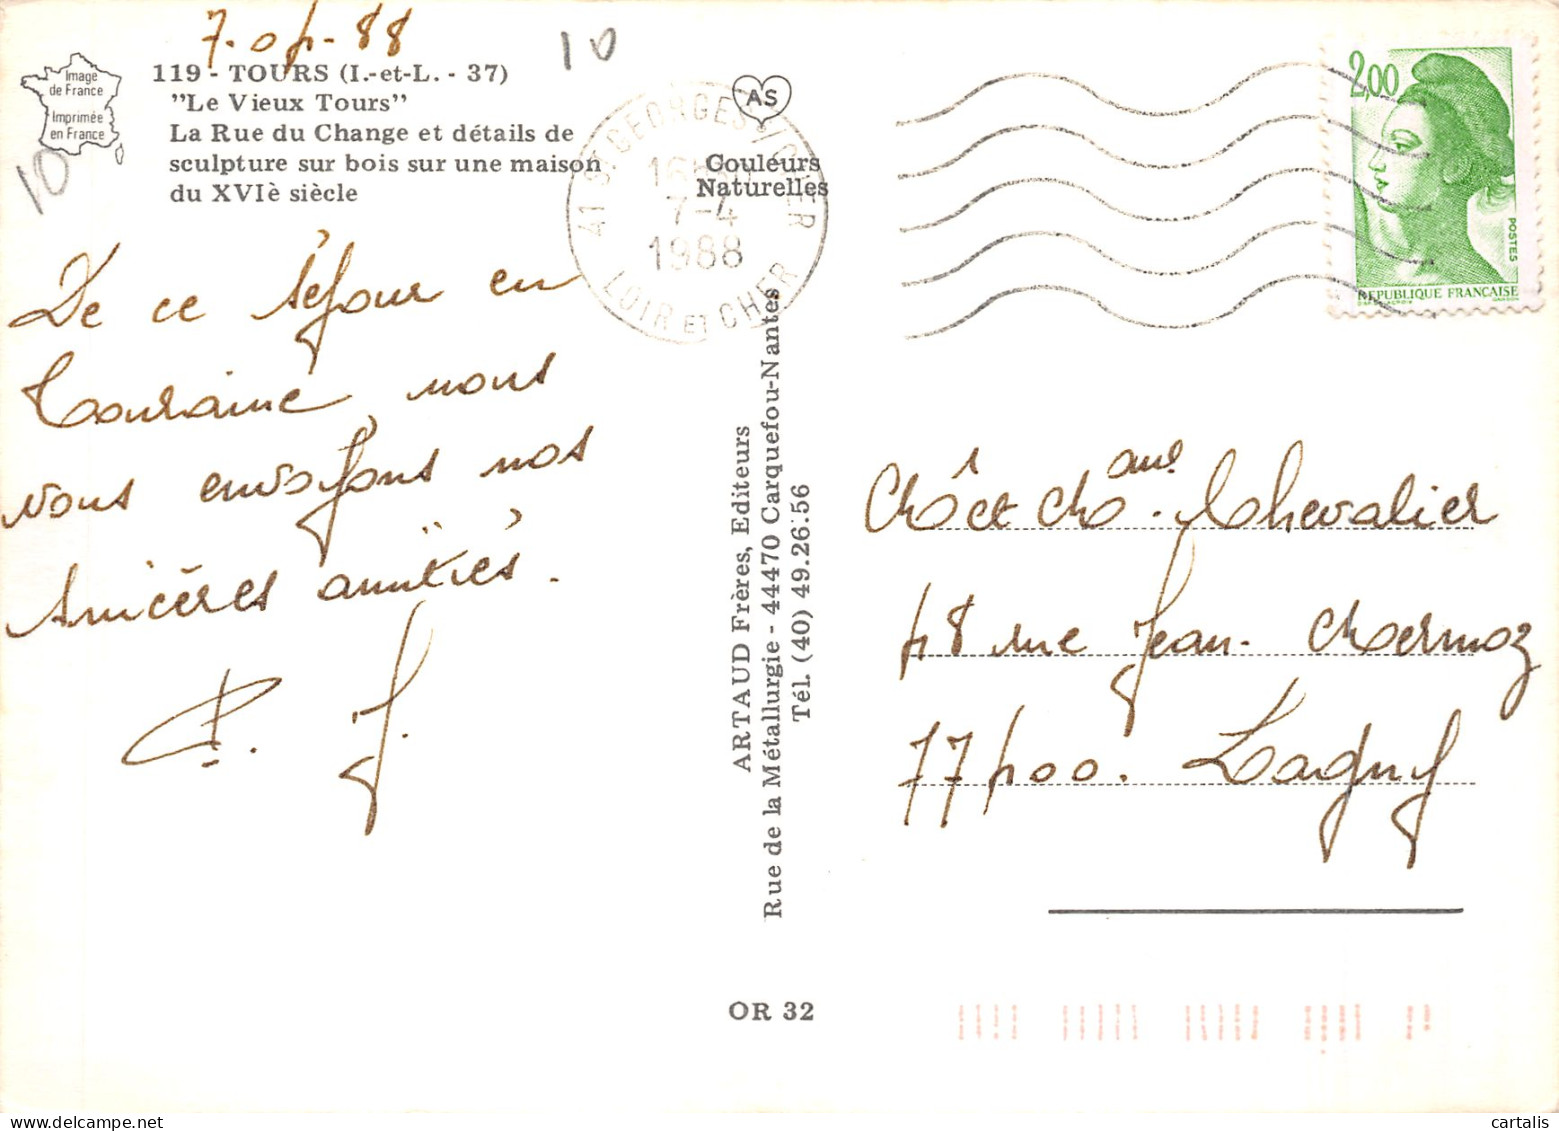 7-04-88
10
Image
de France
Imprimée
en France
10
119 - TOURS (I.-et-L. - 37)
"Le Vieux Tours"
La Rue du Change et détails de
sculpture sur bois sur une maison
du XVIè siècle
AS
Couleurs
Naturelles
41 ST GEORGES S/CHER
16H
7-4
1988
LOIR ET CHER
2,00
POSTES
REPUBLIQUE FRANÇAISE
De ce séjour en
Touraine, nous
vous envoyons nos
sincères amitiés.
ARTAUD Frères, Editeurs
Rue de la Métallurgie - 44470 Carquefou-Nantes
Tél. (40) 49.26.56
et Chevalier
48 rue Jean Mermoz
77400. Lagny
OR 32
cartalis